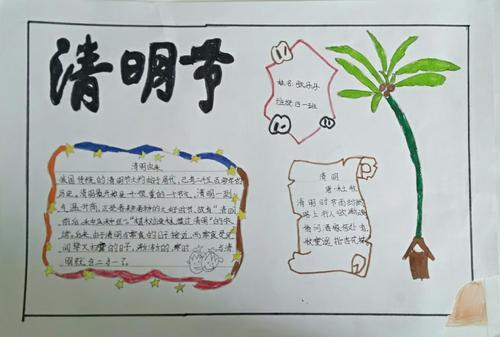 清明节
姓名:张乐乐
班级:四一班
清明由来
我国传统的清明节大约始于周代,已有二千五百多年的
历史。清明最开始是一个很重要的节气,清明一到
气温升高,正是春耕春种的大好时节,故有"清明
前后,种瓜种豆""植树造林,莫过清明"的农
谚。后来,由于清明与寒食的日子接近,而寒食是民
间禁火扫墓的日子,渐渐的,寒食与清
明就合二为一了。
清明
唐·杜牧
清明时节雨纷纷
路上行人欲断魂
借问酒家何处有
牧童遥指杏花村